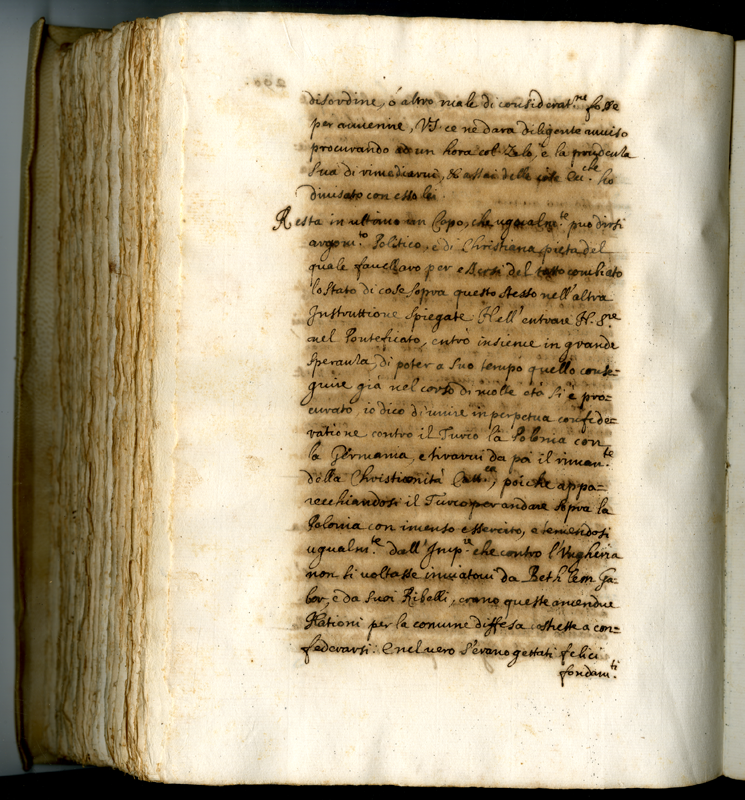 disordine, ó altro male di considerat.ne fosse
per auuenire, VS. ce ne dara diligente auuiso
procurando ad un hora col Zelo, e la prudẽcula
Sua di rimediarui, & assai delle cose Eccl.che ho
diuisato con esso lei.
Resta in ultimo un Capo, che ugualm.te può dirsi
argom.to Politico, e di Christiana pieta del
quale fauellaro per essersi del tutto cambiato
lo Stato di cose sopra questo stesso nell'altra
Instruttione Spiegate. Nell'entrare N. S.re
nel Ponteficato, entrò insieme in grande
Speranza, di poter a Suo tempo quello conse=
guire già nel corso di molte età si è pro=
curato, io dico d'unire in perpetua confede=
ratione contro il Turco la Polonia con
la Germania, e tirarui da poi il riman.te
della Christianità Catt.ca, poiche appa=
recchiandosi il Turco per andare sopra la
Polonia con imenso essercito, e temendosi
ugualm.te dall'Imp.re che contro l'Vngheria
non si voltasse inuiatoui da Beth lem Ga=
bor, e da suoi Ribelli, erano queste amendue
Nationi per la comune diffesa costrette a con=
federarsi: E nel uero s'erano gettati felici
fondam.ti